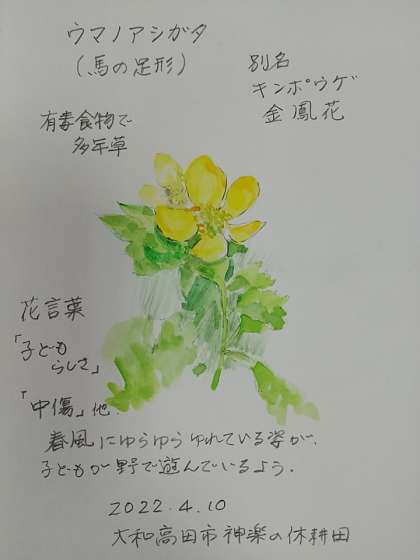 ウマノアシガタ
(馬の足形)
別名
キンポウゲ
金鳳花
有毒食物で
多年草
花言葉
「子ども
らしさ」
「中傷」他
春風にゆらゆらゆれている姿が、
子どもが野で遊んでいるよう.
2022.4.10
大和高田市神楽の休耕田